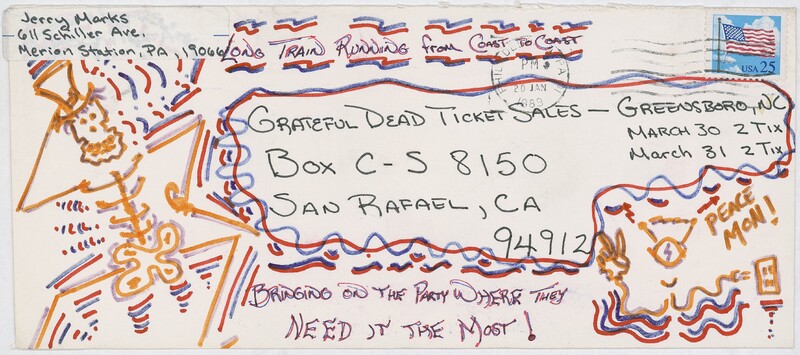 Jerry Marks
611 Schiller Ave.
Merion Station, PA, 19066
Long Train Running from Coast to Coast
PM
20 JAN
1989
USA 25
Grateful Dead Ticket Sales — Greensboro, NC
March 30 2 Tix
March 31 2 Tix
Box C-S 8150
San Rafael, CA
94912
Peace
Mon!
Bringing on the Party Where They
Need it the Most!